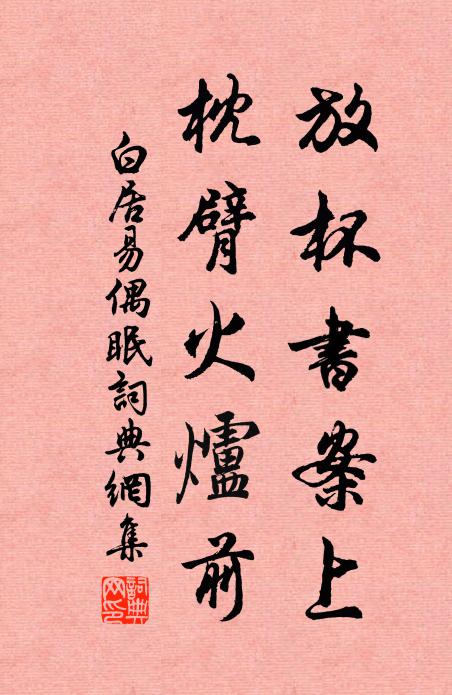 放杯書案上
枕臂火爐前
白居易偶眠詞典網集
詞典網印